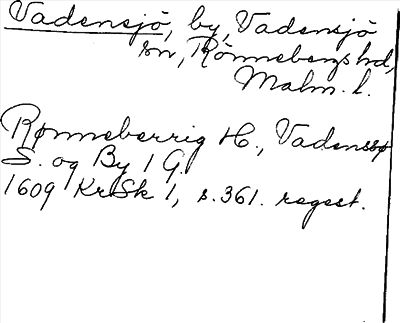 Vadensjö, by, Vadensjö
sn, Rönnebergs hd,
Malm. l.
Rønneberrig H., Vadenssø
S. og By 1 G.
1609 KrSk 1, s. 361. regest.